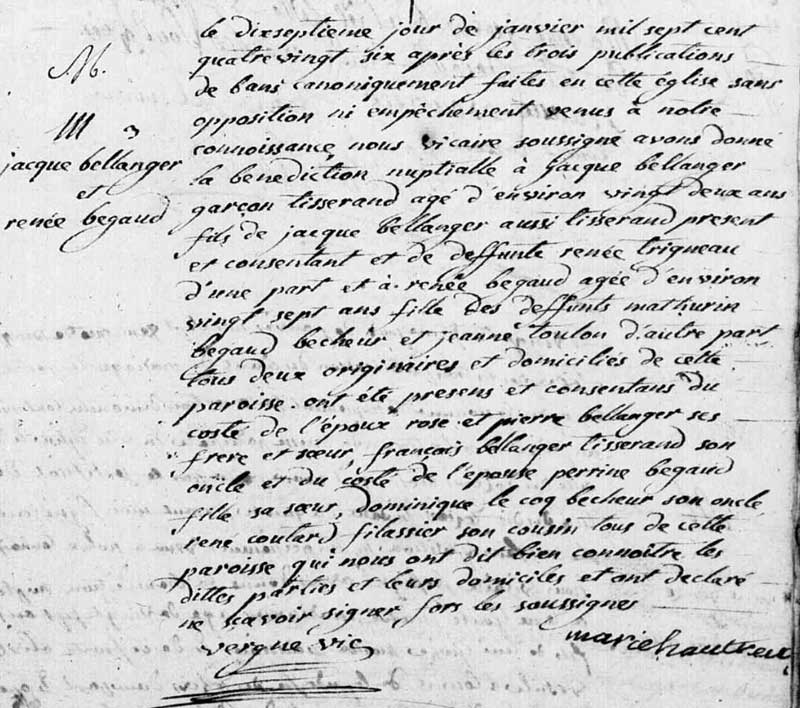 M.
III
jacque bellanger
et
renée begaud
le dixseptieme jour de janvier mil sept cent
quatrevingt six après les trois publications
de bans canoniquement faites en cette église sans
opposition ni empêchement venus à notre
connoissance, nous vicaire soussigné avons donné
la benediction nuptialle à jacque bellanger
garçon tisserand agé d'environ vingt deux ans
fils de jacque bellanger aussi tisserand present
et consentant et de deffunte renée trigneau
d'une part et à renée begaud agée d'environ
vingt sept ans fille des deffunts mathurin
begaud becheur et jeanne toulon d'autre part
tous deux originaires et domiciliés de cette
paroisse. ont été presens et consentans du
costé de l'époux rose et pierre bellanger ses
frere et sœur, françois bellanger tisserand son
oncle et du costé de l'epouse perrine begaud
fille sa sœur, dominique le coq becheur son oncle,
rené coutard filassier son cousin tous de cette
paroisse qui nous ont dit bien connoître les
dittes parties et leurs domiciles et ont declaré
ne sçavoir signer, fors les soussignés
vergne vic
marie hautreux